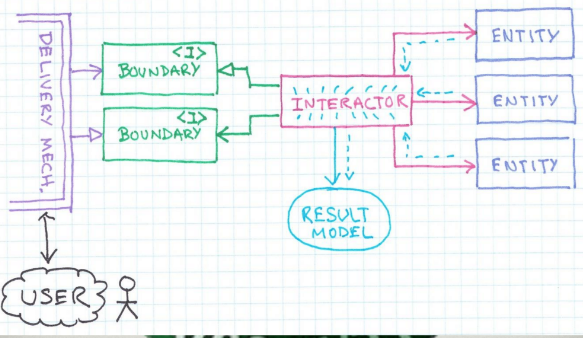 DELIVERY MECH.
<I>
BOUNDARY
<I>
BOUNDARY
INTERACTOR
ENTITY
ENTITY
ENTITY
RESULT
MODEL
USER